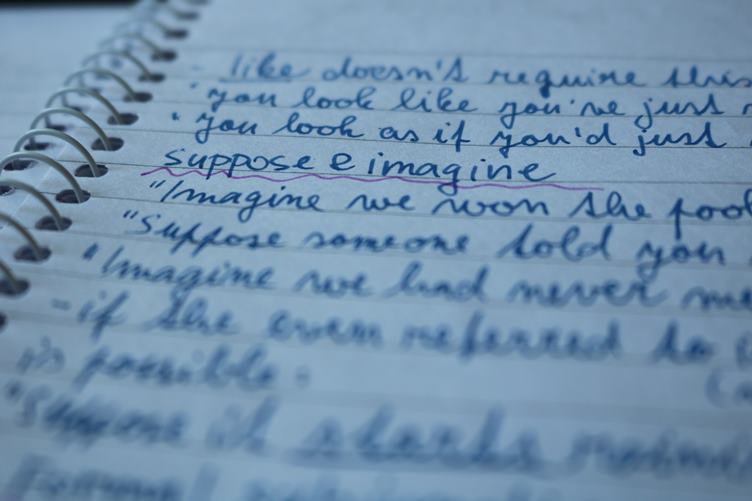 - like doesn't require this
"you look like you've just
"you look as if you'd just
suppose e imagine
"Imagine we won the foot
"Suppose someone told you
"Imagine we had never me
-if the even referred to
is possible.
"Suppose it starts raini